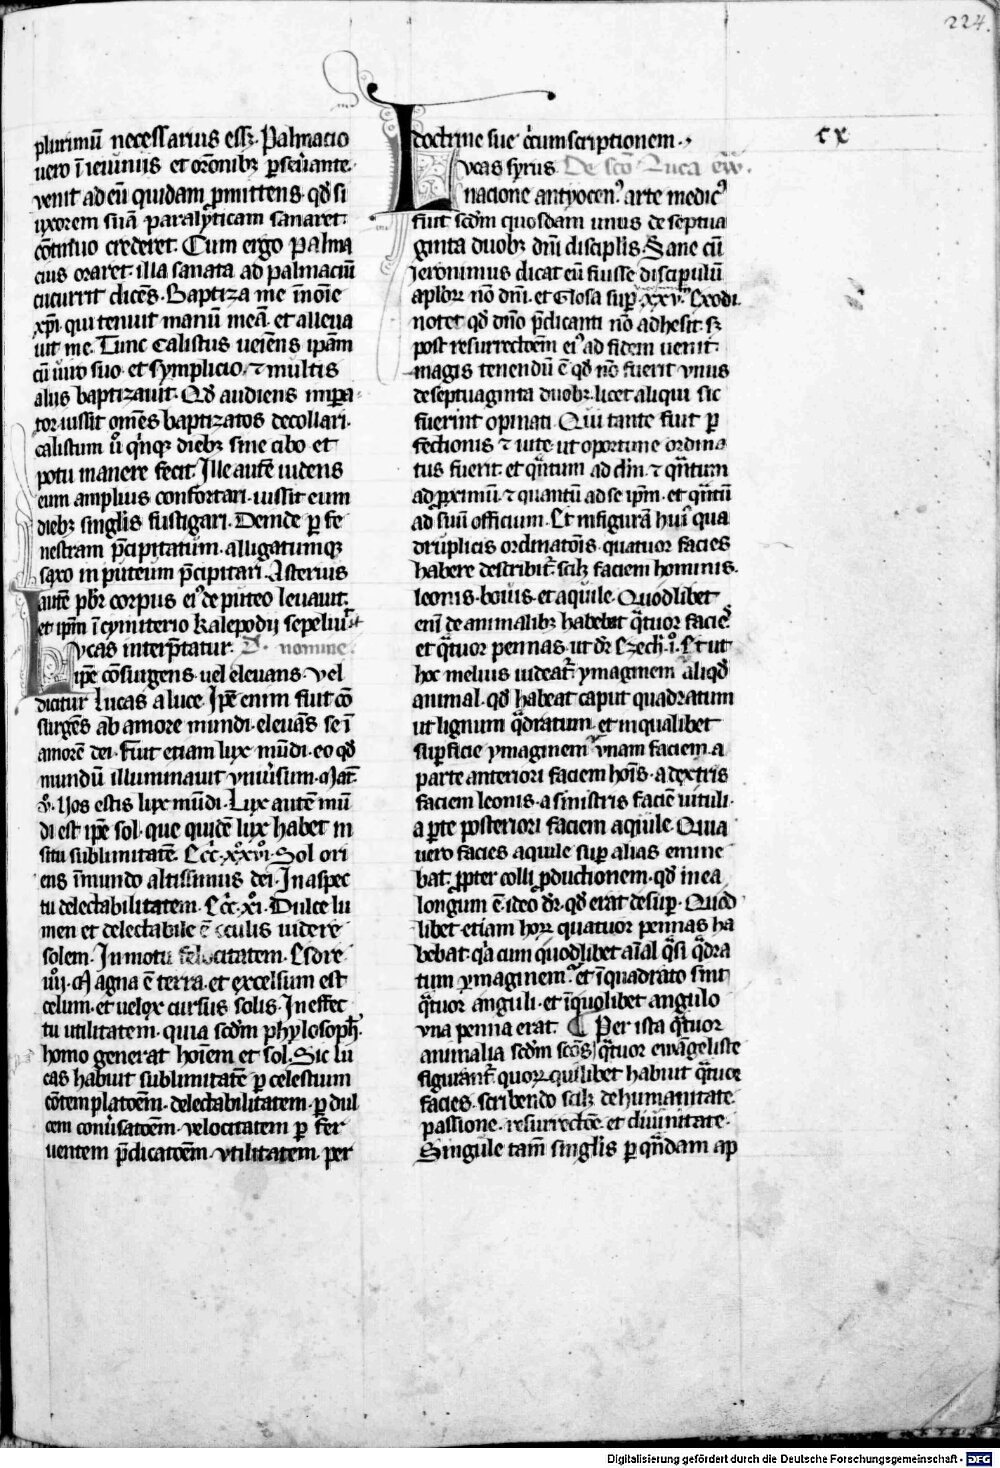 224.
plurimū necessarius eēt. Palmacio
uero ī ieiuniis et orōnibꝫ ꝑseūante.
venit ad eū quidam ꝓmittens. qđ si
uxorem suā paralyticam sanaret.
cōtinuo crederet. Cum ergo palma
cius oraret. illa sanata ad palmaciū
cucurrit dicēs. Baptiza me ī noīe
xp̄i. qui tenuit manū meā. et alleua
uit me. Tunc Calistus ueīens ip̄am
cū uiro suo. et symplicio. ⁊ multis
aliis baptizauit. Qđ audiens impa-
tor. iussit om̄es baptizatos decollari.
calistum ū̊ qͥnqꝫ diebꝫ sine cibo et
potu manere fecit. Ille autē uidens
eum amplius confortari. iussit eum
diebꝫ singlis fustigari. Deinde ꝑ fe
nestram p̄cipitatum. alligatumqꝫ
saxo in puteum p̄cipitari. Asterius
autē pbr̄ corpus eiꝰ de puteo leuauit.
et ip̄m ī cymiterio kalepodij sepeliuit
Lvcas interp̄tatur. D. nomine.
ip̄e cōsurgens. uel eleuans. Vel
dicitur lucas a luce. Ip̄e enim fuit cō
surgēs ab amore mundi. eleuās se ī
amorē dei. Fuit etiam lux mūdi. eo qđ
mundū illuminauit vniūsum. Mat̄.
v̊. Uos estis lux mūdi. Lux autē mū
di est ip̄e sol. que quidē lux habet in
situ sublimitatē. Ecc̄. xxvi̊. Sol ori
ens ī mundo altissimus dei. In aspec
tu delectabilitatem. Ecc̄. xi̊. Dulce lu
men et delectabile ē oculis uidere
solem. In motu uelocitatem. Esdre
iiij̊. Magna ē terra. et excelsum est
celum. et uelox cursus solis. In effec
tu utilitatem. quia scd̄m phylosoph̄.
homo generat hoīem et sol. Sic lu
cas habuit sublimitatē ꝑ celestium
cōtemplatōem. delectabilitatem. ꝑ dul
cem conūsatōem. velocitatem ꝑ fer
uentem p̄dicatōem. vtilitatem. per
doctrine sue cͥcumscriptionem.
cx
Lvcas syrus De scō Luca ew̄.
nacione antyocenꝰ. arte medicꝰ
fuit scd̄m quosdam unus de septua
ginta duobꝫ dn̄i disciplis. Sane cū
Ieronimus dicat eū fuisse discipulū
apl̄oꝝ nō dn̄i. et Glosa suꝑ. xxv. Exodi.
notet qđ dn̄o p̄dicanti nō adhesit. sꝫ
post resurrectoēm eiꝰ ad fidem uenit.
magis tenendū ē qđ nō fuerit vnus
de septuaginta duobꝫ. licet aliqui sic
fuerint opinati. Qui tante fuit ꝑ
fectionis ⁊ uite. ut oportune ordina
tus fuerit. et qͣntum ad dm̄. ⁊ qͣntum
ad ꝓximū. ⁊ quantū ad se ip̄m. et qͣntū
ad suū officium. Et in figurā huiꝰ qua
druplicis ordinatōis. quatuor facies
habere describit̄. scilꝫ faciem hominis.
leonis. bouis. et aquile. Quodlibet
enī de animalibꝫ habebat qͣtuor facieꝰ
et qͣtuor pennas. ut dr̄. Ezech̄. i̊. Et ut
hoc melius uideat̄. ymaginem᷑ aliqđ
animal. qđ habeat caput quadratum
ut lignum qͣdratum. et in qualibet
suꝑficie ymaginem᷑ vnam faciem. a
parte anteriori faciem hoīs. a dextris
faciem leonis. a sinistris faciē uituli.
a ꝑte posteriori faciem aqiule. Quia
uero facies aquile suꝑ alias emine
bat. ꝓpter colli ꝓductionem. qđ in ea
longum ē. ideo dr̄. qđ erat desuꝑ. Quod
libet etiam hoꝝ quatuor pennas ha
bebat. qͥa cum quodlibet aīal qͣsi qͣdra
tum ymaginem᷑. et ī quadrato sint
qͣtuor anguli. et ī quolibet angulo
vna penna erat. ¶ Per ista qͣtuor
animalia scd̄m scōs qͣtuor ewāgeliste
figurant̄. quoꝝ quilibet habuit qͣtuor
facies. scribendo scilꝫ de humanitate.
passione. resurrectōe. et diuinitate.
Singule tam̄ singlis ꝑ qn̄dam ap
Digitalisierung gefördert durch die Deutsche Forschungsgemeinschaft - DFG